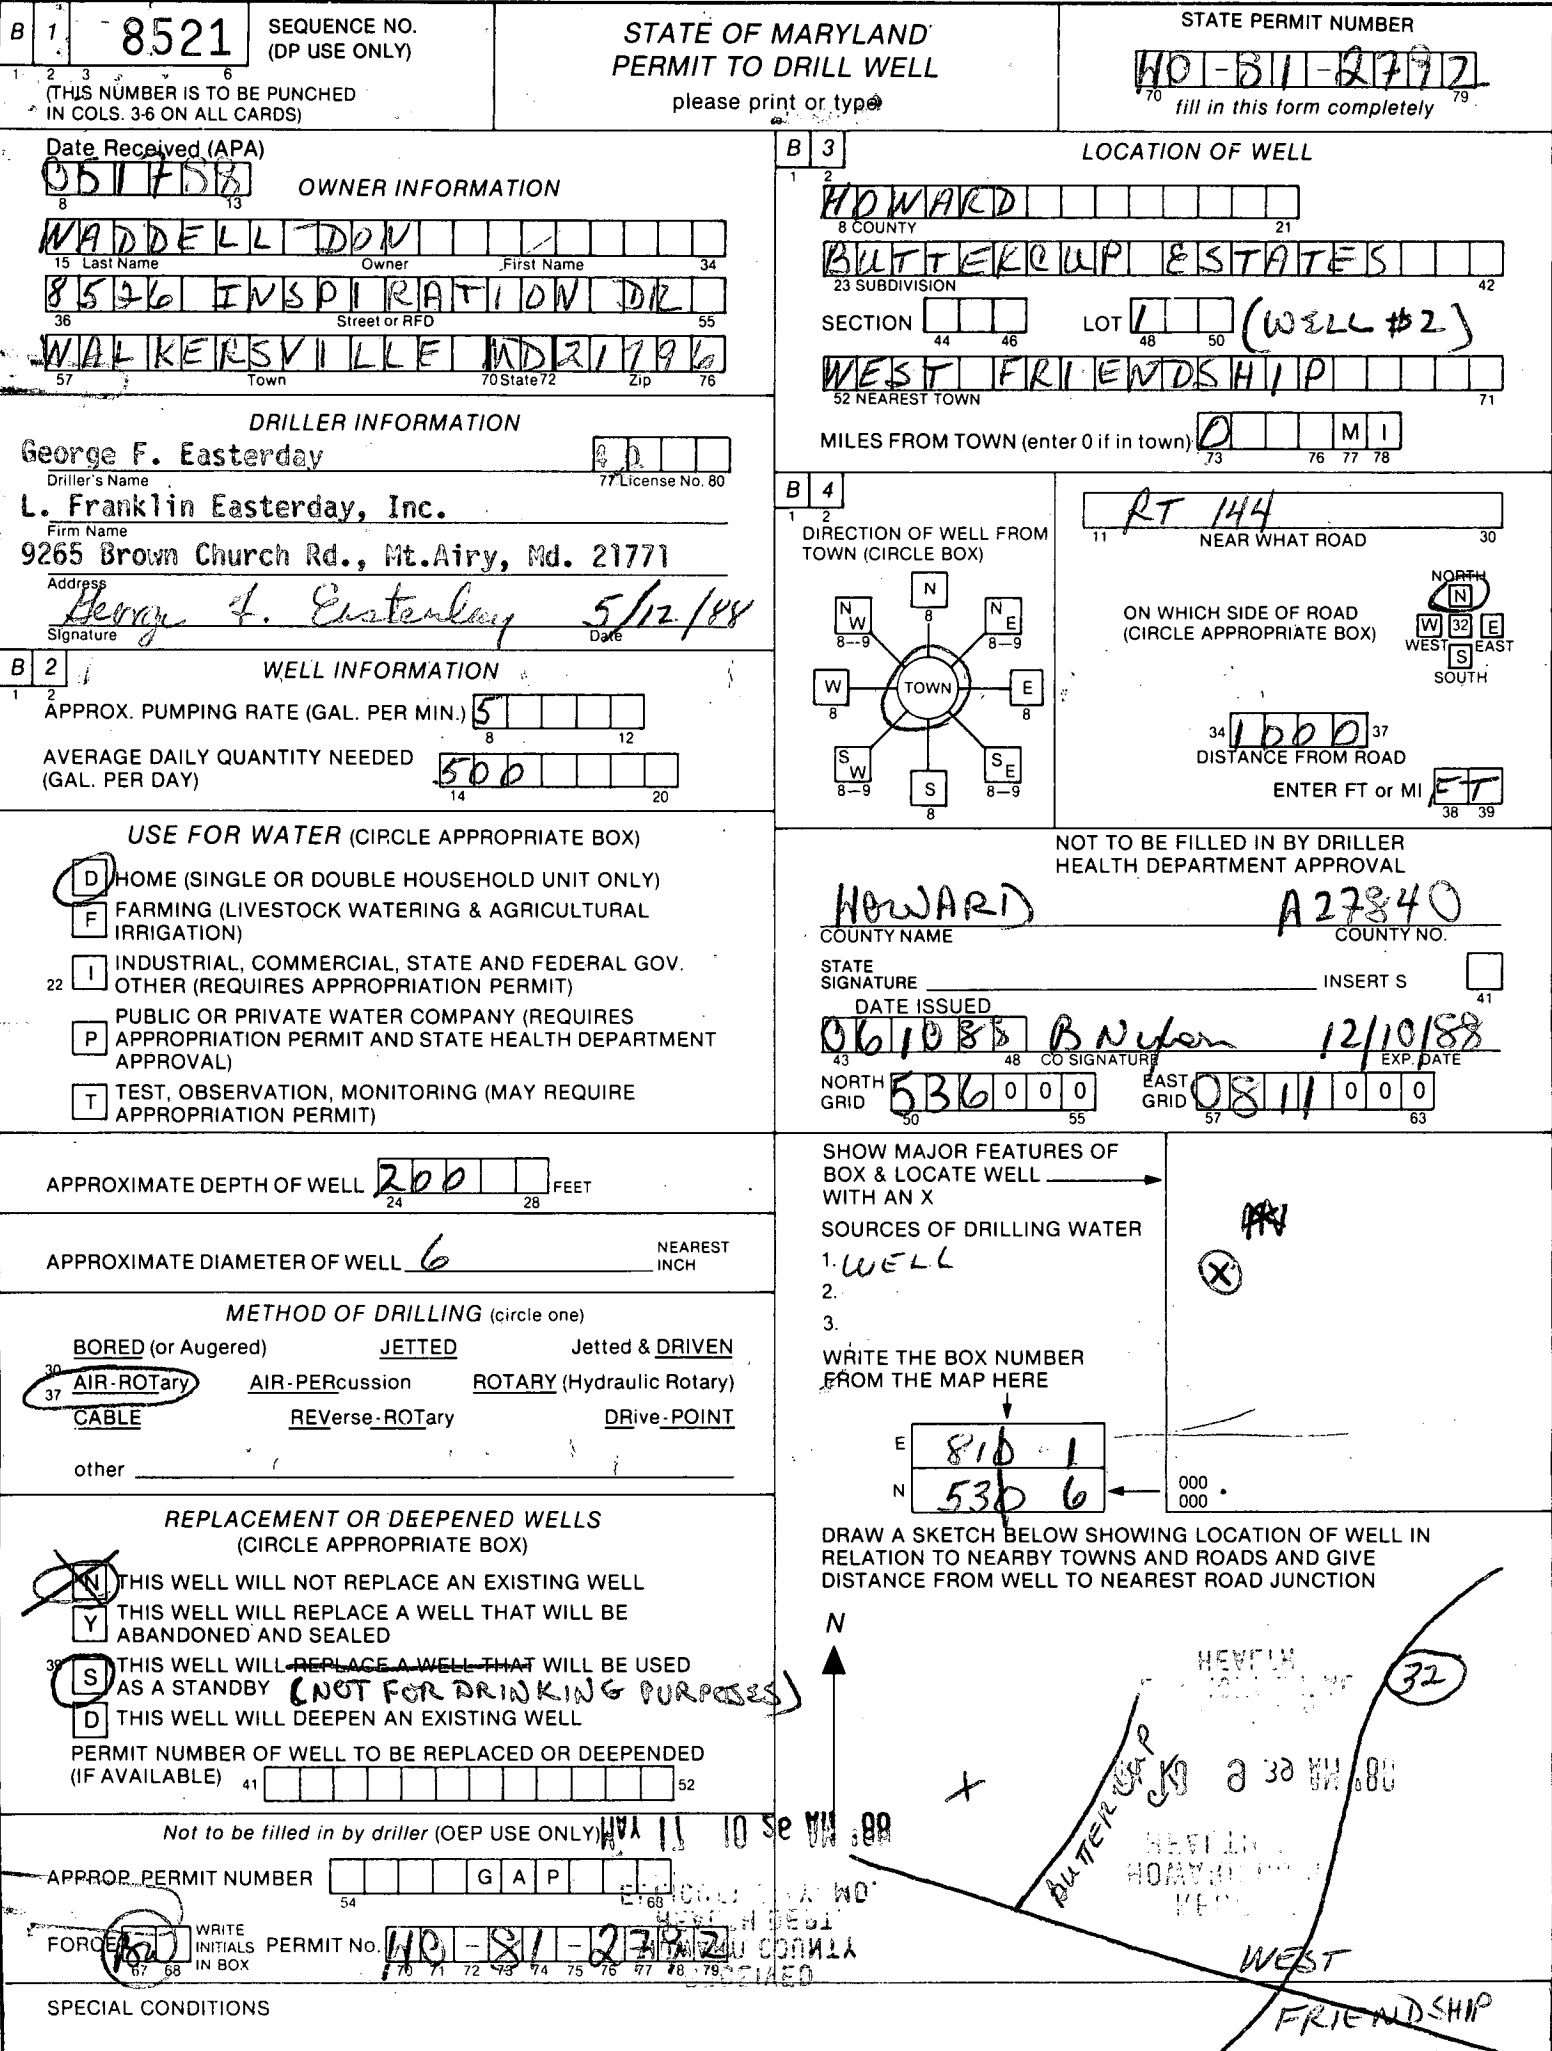 B 1 8521 SEQUENCE NO.
(DP USE ONLY)
1 2 3 6
(THIS NUMBER IS TO BE PUNCHED
IN COLS. 3-6 ON ALL CARDS)
STATE OF MARYLAND
PERMIT TO DRILL WELL
please print or type
STATE PERMIT NUMBER
HO-81-2792
70 79
fill in this form completely
Date Received (APA)
051788
8 13
OWNER INFORMATION
WADDELL DON
15 Last Name Owner First Name 34
8526 INSPIRATION DR
36 Street or RFD 55
WALKERSVILLE MD 21796
57 Town 70 State 72 Zip 76
DRILLER INFORMATION
George F. Easterday 40
Driller's Name 77 License No. 80
L. Franklin Easterday, Inc.
Firm Name
9265 Brown Church Rd., Mt.Airy, Md. 21771
Address
George F. Easterday 5/12/88
Signature Date
B 2 WELL INFORMATION
1 2
APPROX. PUMPING RATE (GAL. PER MIN.) 5
8 12
AVERAGE DAILY QUANTITY NEEDED
(GAL. PER DAY) 500
14 20
USE FOR WATER (CIRCLE APPROPRIATE BOX)
D HOME (SINGLE OR DOUBLE HOUSEHOLD UNIT ONLY)
F FARMING (LIVESTOCK WATERING & AGRICULTURAL
IRRIGATION)
22 I INDUSTRIAL, COMMERCIAL, STATE AND FEDERAL GOV.
OTHER (REQUIRES APPROPRIATION PERMIT)
P PUBLIC OR PRIVATE WATER COMPANY (REQUIRES
APPROPRIATION PERMIT AND STATE HEALTH DEPARTMENT
APPROVAL)
T TEST, OBSERVATION, MONITORING (MAY REQUIRE
APPROPRIATION PERMIT)
APPROXIMATE DEPTH OF WELL 200 FEET
24 28
APPROXIMATE DIAMETER OF WELL 6 NEAREST
INCH
METHOD OF DRILLING (circle one)
BORED (or Augered) JETTED Jetted & DRIVEN
30
37 AIR-ROTary AIR-PERcussion ROTARY (Hydraulic Rotary)
CABLE REVerse-ROTary DRive-POINT
other
REPLACEMENT OR DEEPENED WELLS
(CIRCLE APPROPRIATE BOX)
N THIS WELL WILL NOT REPLACE AN EXISTING WELL
Y THIS WELL WILL REPLACE A WELL THAT WILL BE
ABANDONED AND SEALED
39 S THIS WELL WILL REPLACE A WELL THAT WILL BE USED
AS A STANDBY (NOT FOR DRINKING PURPOSES)
D THIS WELL WILL DEEPEN AN EXISTING WELL
PERMIT NUMBER OF WELL TO BE REPLACED OR DEEPENDED
(IF AVAILABLE) 41 52
Not to be filled in by driller (OEP USE ONLY)
APPROP. PERMIT NUMBER G A P
54 63
FORCE WRITE
INITIALS
IN BOX
67 68
PERMIT No. HO-81-2792
70 71 72 73 74 75 76 77 78 79
SPECIAL CONDITIONS
B 3 LOCATION OF WELL
1 2
HOWARD
8 COUNTY 21
BUTTERCUP ESTATES
23 SUBDIVISION 42
SECTION LOT 1 (WELL #2)
44 46 48 50
WEST FRIENDSHIP
52 NEAREST TOWN 71
MILES FROM TOWN (enter 0 if in town) 0 M I
73 76 77 78
B 4
1 2
DIRECTION OF WELL FROM
TOWN (CIRCLE BOX)
N
8
NW
8-9
NE
8-9
W
8
TOWN
E
8
SW
8-9
SE
8-9
S
8
RT 144
11 NEAR WHAT ROAD 30
ON WHICH SIDE OF ROAD
(CIRCLE APPROPRIATE BOX)
NORTH
N
W 32 E
WEST EAST
S
SOUTH
34 1000 37
DISTANCE FROM ROAD
ENTER FT or MI FT
38 39
NOT TO BE FILLED IN BY DRILLER
HEALTH DEPARTMENT APPROVAL
HOWARD A27840
COUNTY NAME COUNTY NO.
STATE
SIGNATURE INSERT S
41
DATE ISSUED
061088 B Nixon 12/10/88
43 48 CO SIGNATURE EXP. DATE
NORTH
GRID 536 0 0 0
50 55
EAST
GRID 0811 0 0 0
57 63
SHOW MAJOR FEATURES OF
BOX & LOCATE WELL
WITH AN X
X
SOURCES OF DRILLING WATER
1. WELL
2.
3.
WRITE THE BOX NUMBER
FROM THE MAP HERE
E 810 1
N 530 6
000
000
DRAW A SKETCH BELOW SHOWING LOCATION OF WELL IN
RELATION TO NEARBY TOWNS AND ROADS AND GIVE
DISTANCE FROM WELL TO NEAREST ROAD JUNCTION
N
32
X
BUTTERCUP RD
WEST
FRIENDSHIP